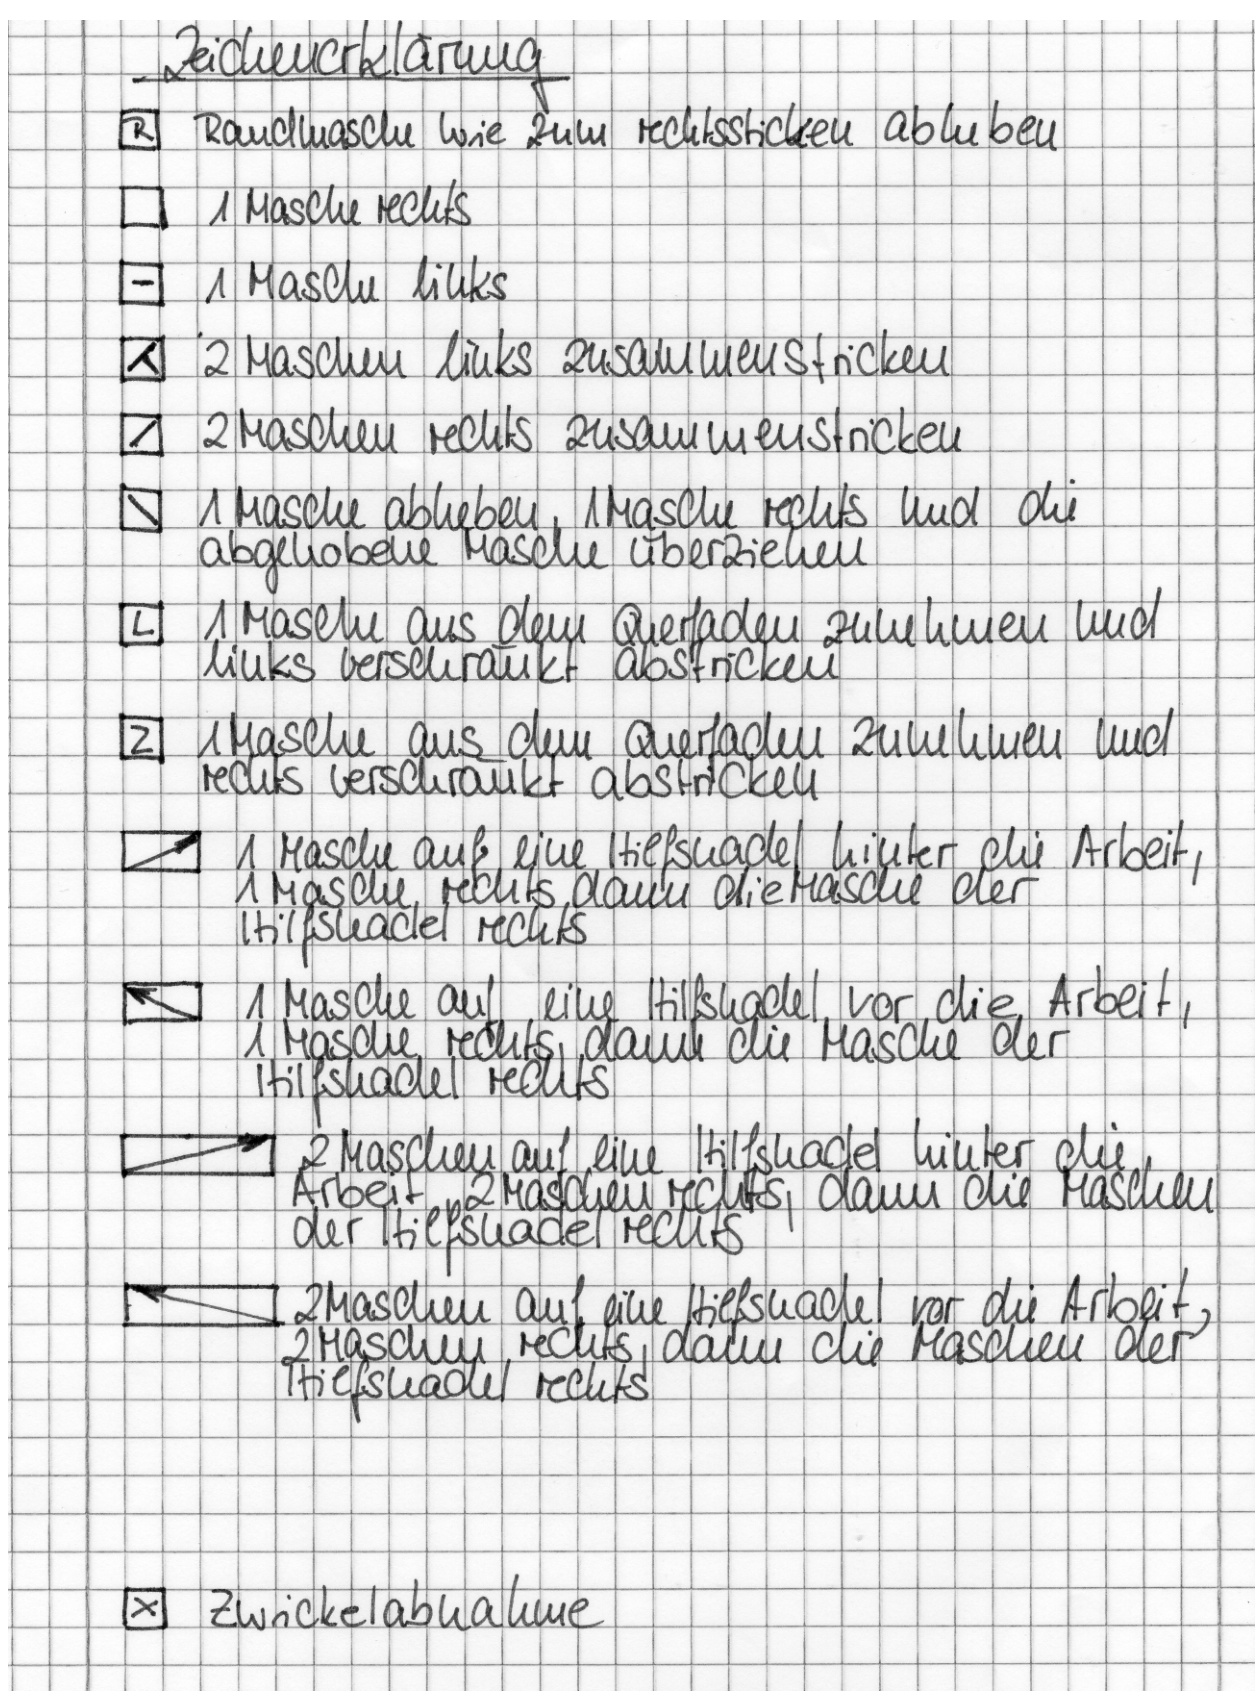 Zeichenerklärung
R Randmasche wie zum rechtssticken abheben
1 Masche rechts
- 1 Masche links
2 Maschen links zusammenstricken
2 Maschen rechts zusammenstricken
1 Masche abheben, 1 Masche rechts und die
abgehobene Masche überziehen
L 1 Masche aus dem Querfaden zunehmen und
links verschränkt abstricken
Z 1 Masche aus dem Querfaden zunehmen und
rechts verschränkt abstricken
1 Masche auf eine Hilfsnadel hinter die Arbeit,
1 Masche rechts, dann die Masche der
Hilfsnadel rechts
1 Masche auf eine Hilfsnadel vor die Arbeit,
1 Masche rechts, dann die Masche der
Hilfsnadel rechts
2 Maschen auf eine Hilfsnadel hinter die
Arbeit, 2 Maschen rechts, dann die Maschen
der Hilfsnadel rechts
2 Maschen auf eine Hilfsnadel vor die Arbeit,
2 Maschen rechts, dann die Maschen der
Hilfsnadel rechts
x Zwickelabnahme